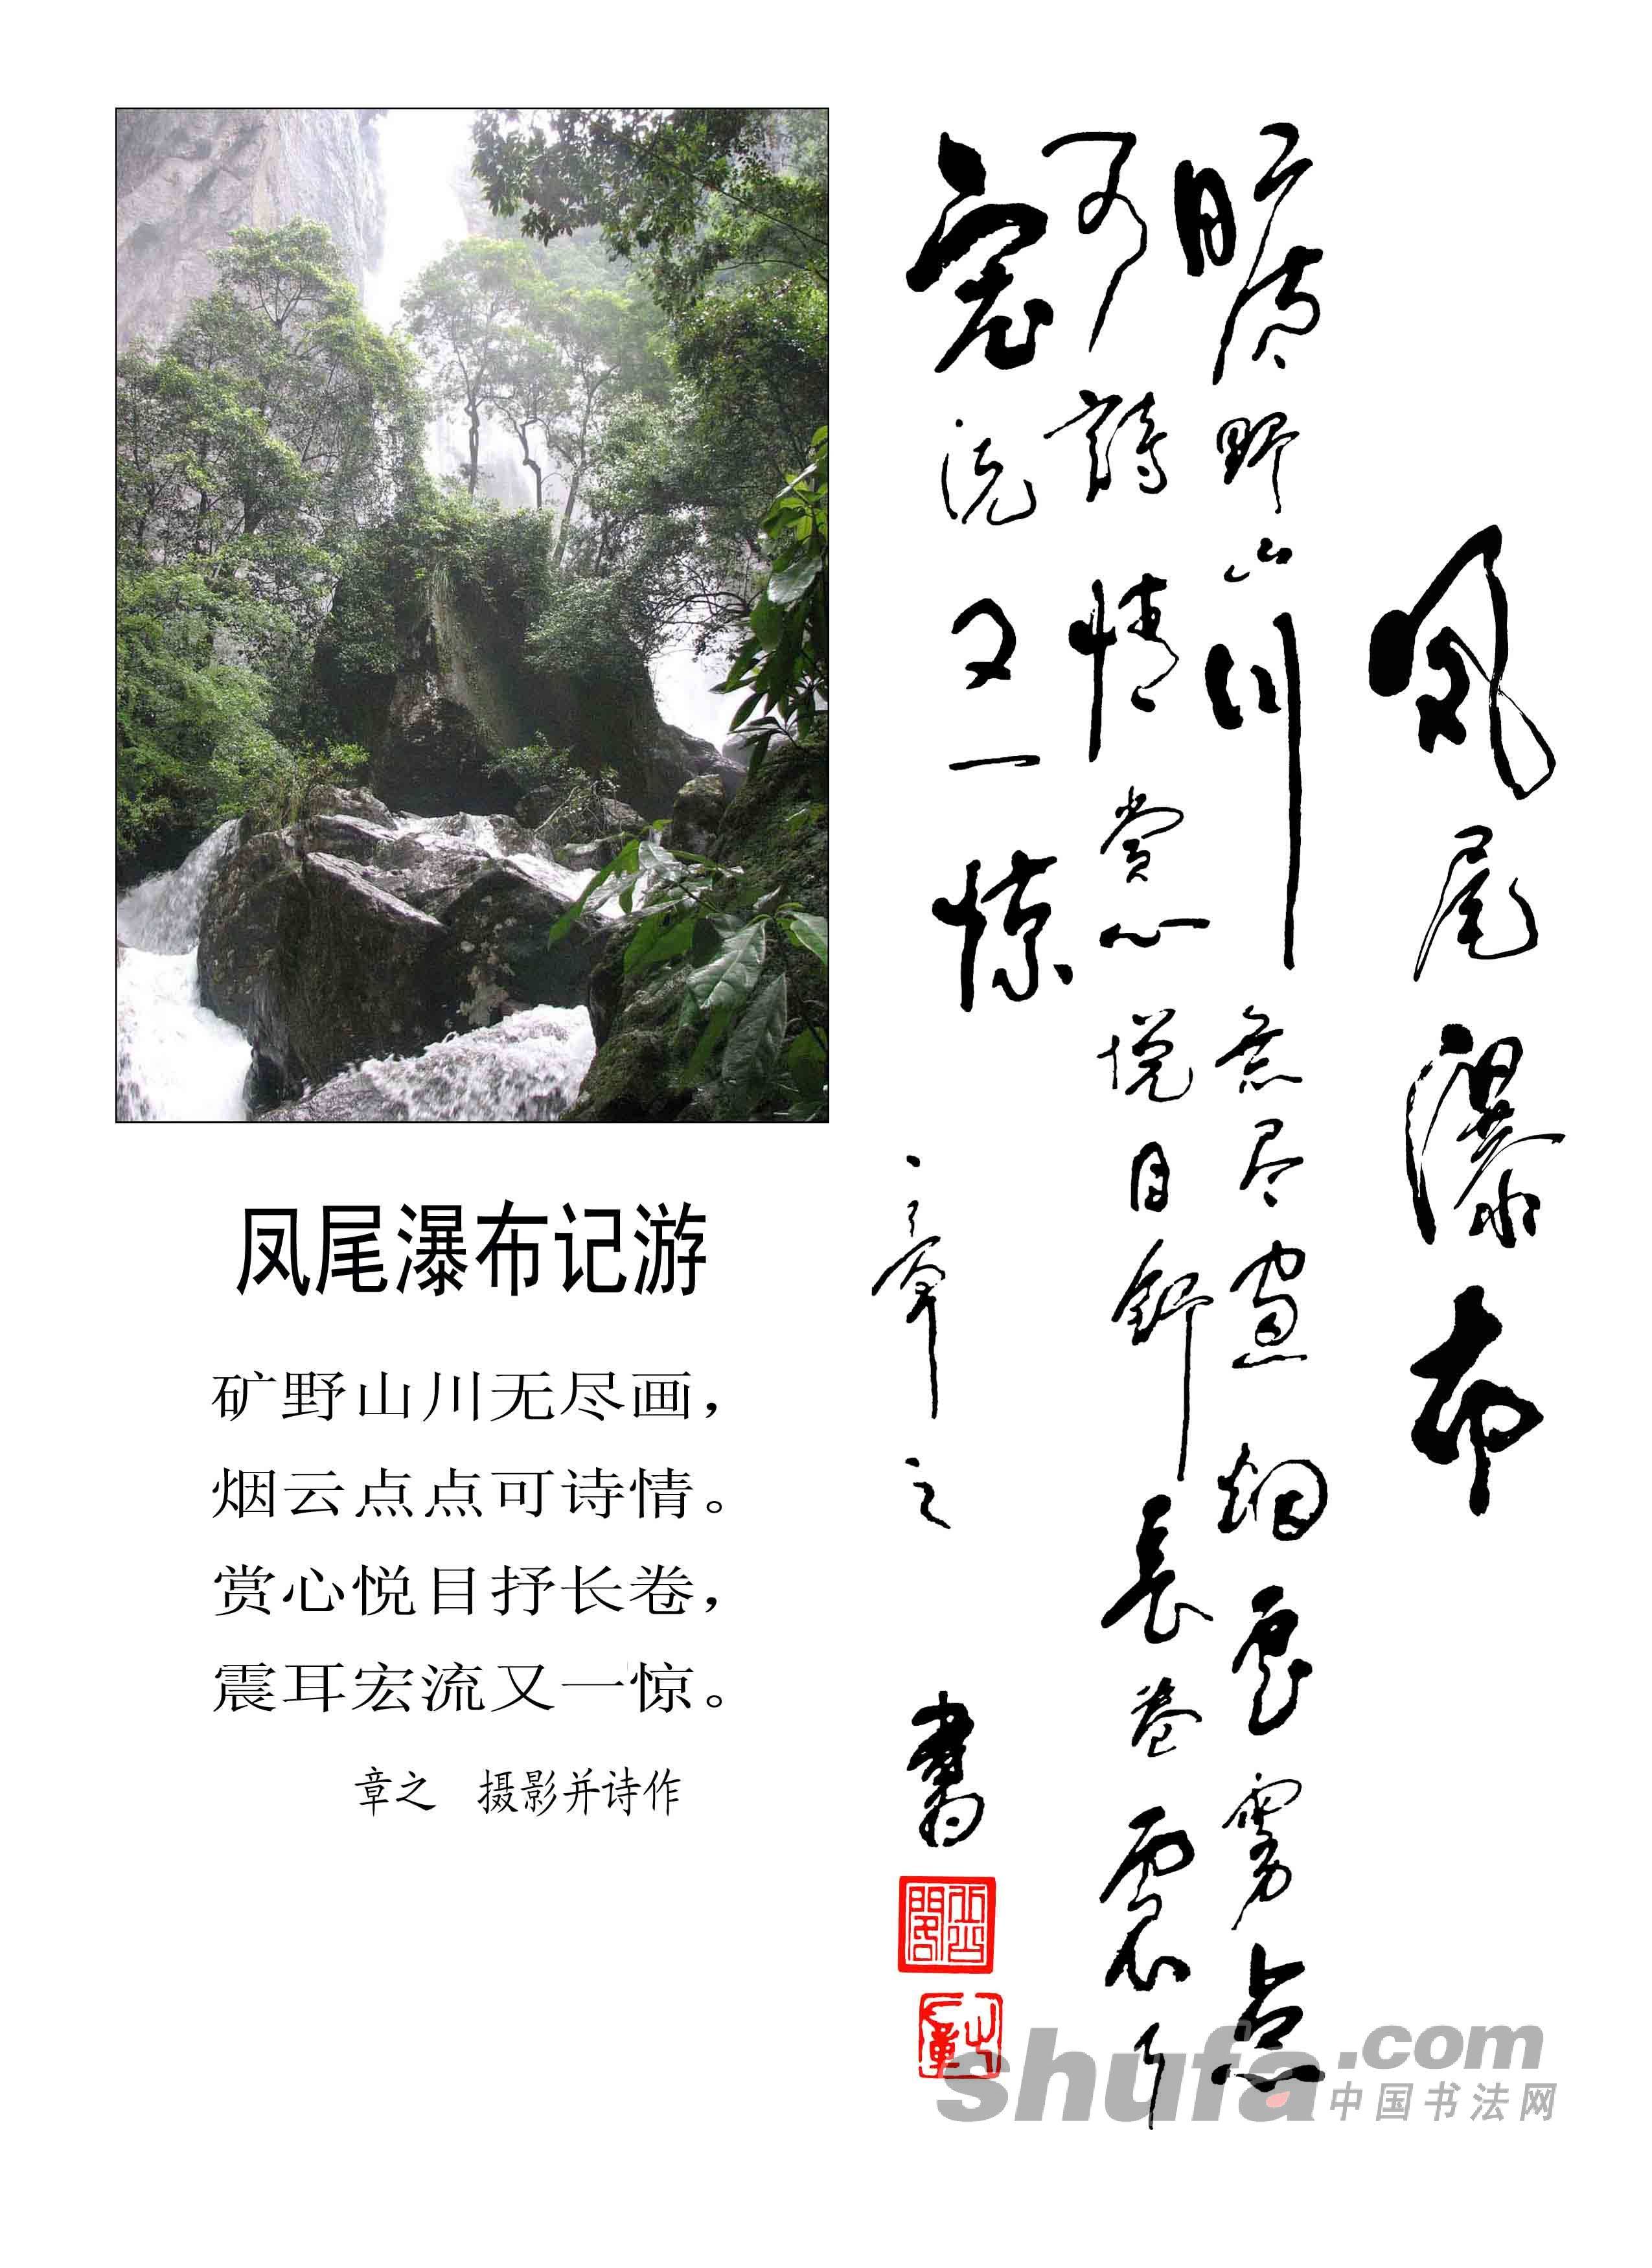 凤尾瀑布记游
矿野山川无尽画，
烟云点点可诗情。
赏心悦目抒长卷，
震耳宏流又一惊。
章之 摄影并诗作
凤尾瀑布
曠野山川無尽畫烟雲雾点
可詩情賞心悦目舒長卷震耳
宏流又一惊
章之書
shufa.com
中国书法网